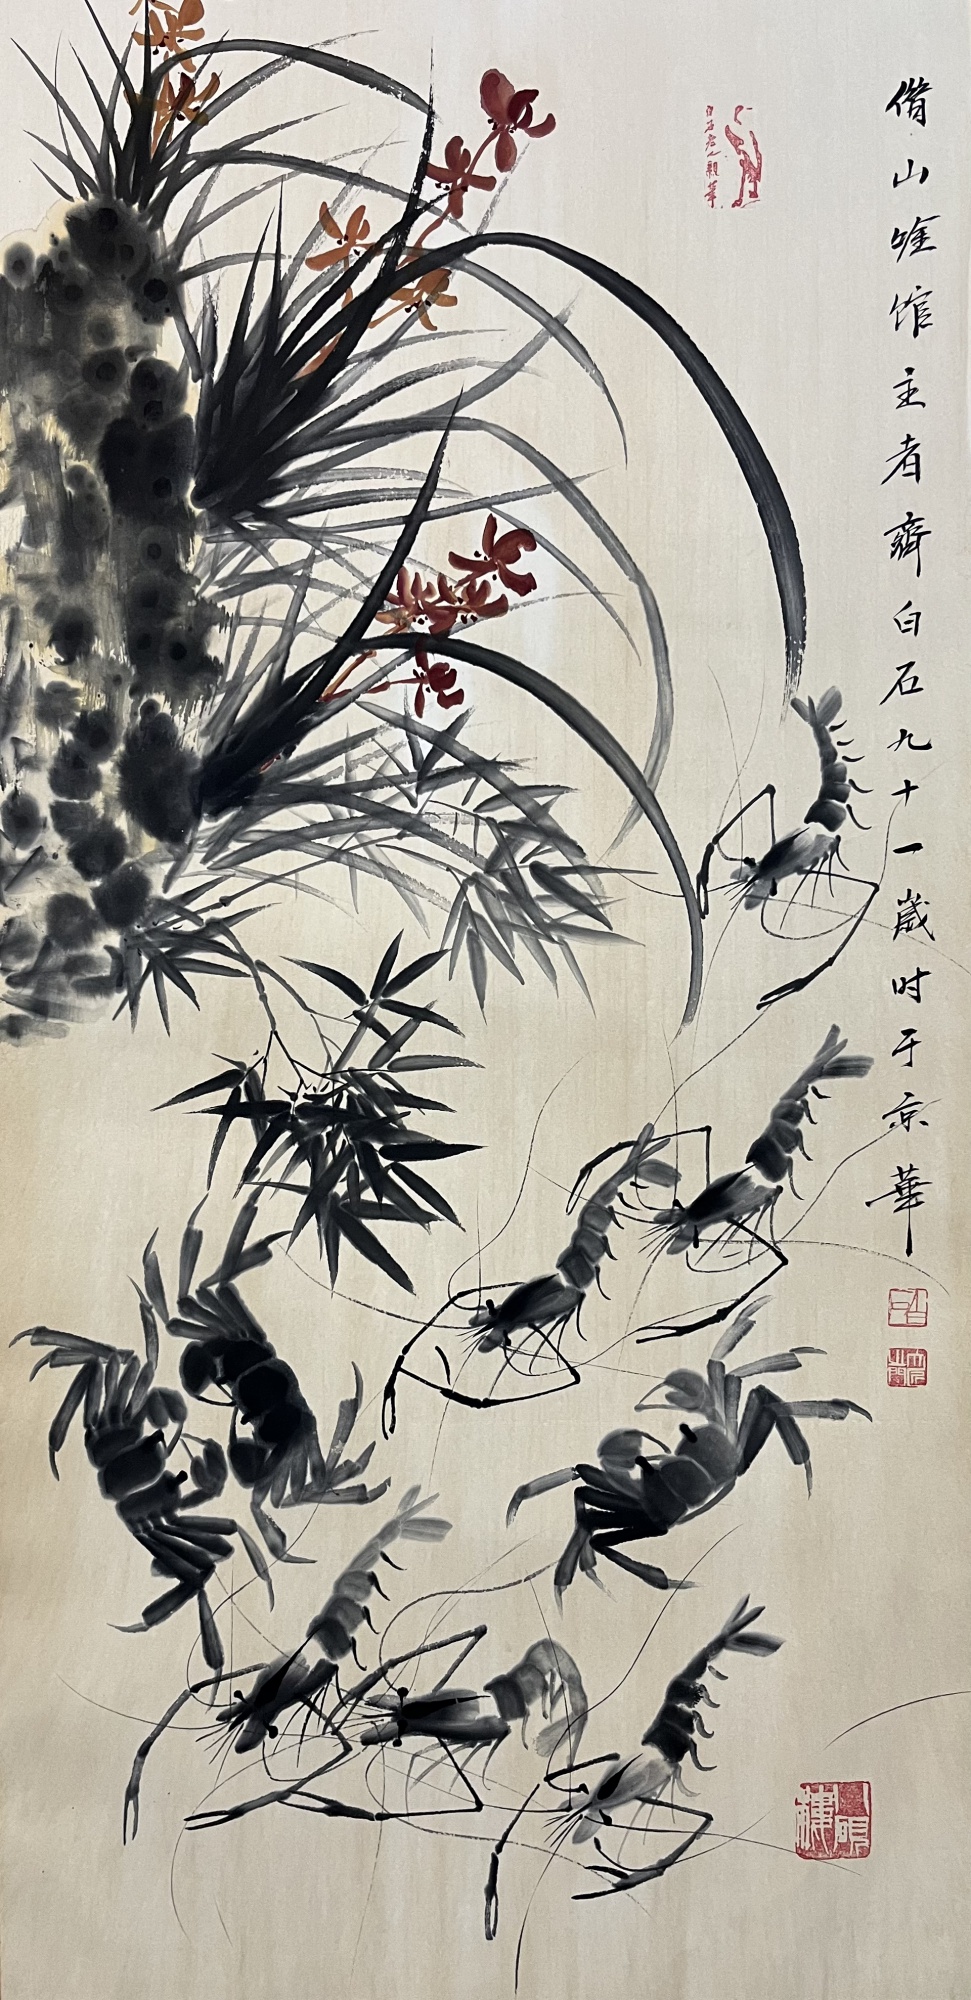 借山唫馆主者齊白石九十一歲时于京華
白石老人親筆